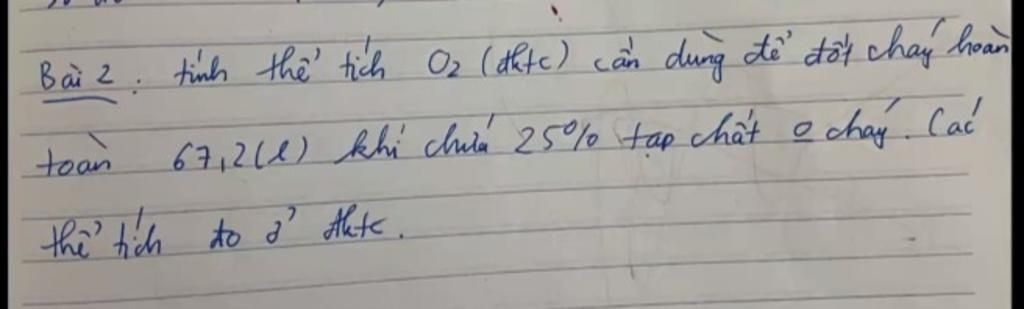 Bài 2 : tính thể tích O2 (đktc) cần dùng để đốt cháy hoàn
toàn 67,2(l) khí chứa 25% tạp chất o cháy. Các
thể tích đo ở đktc.